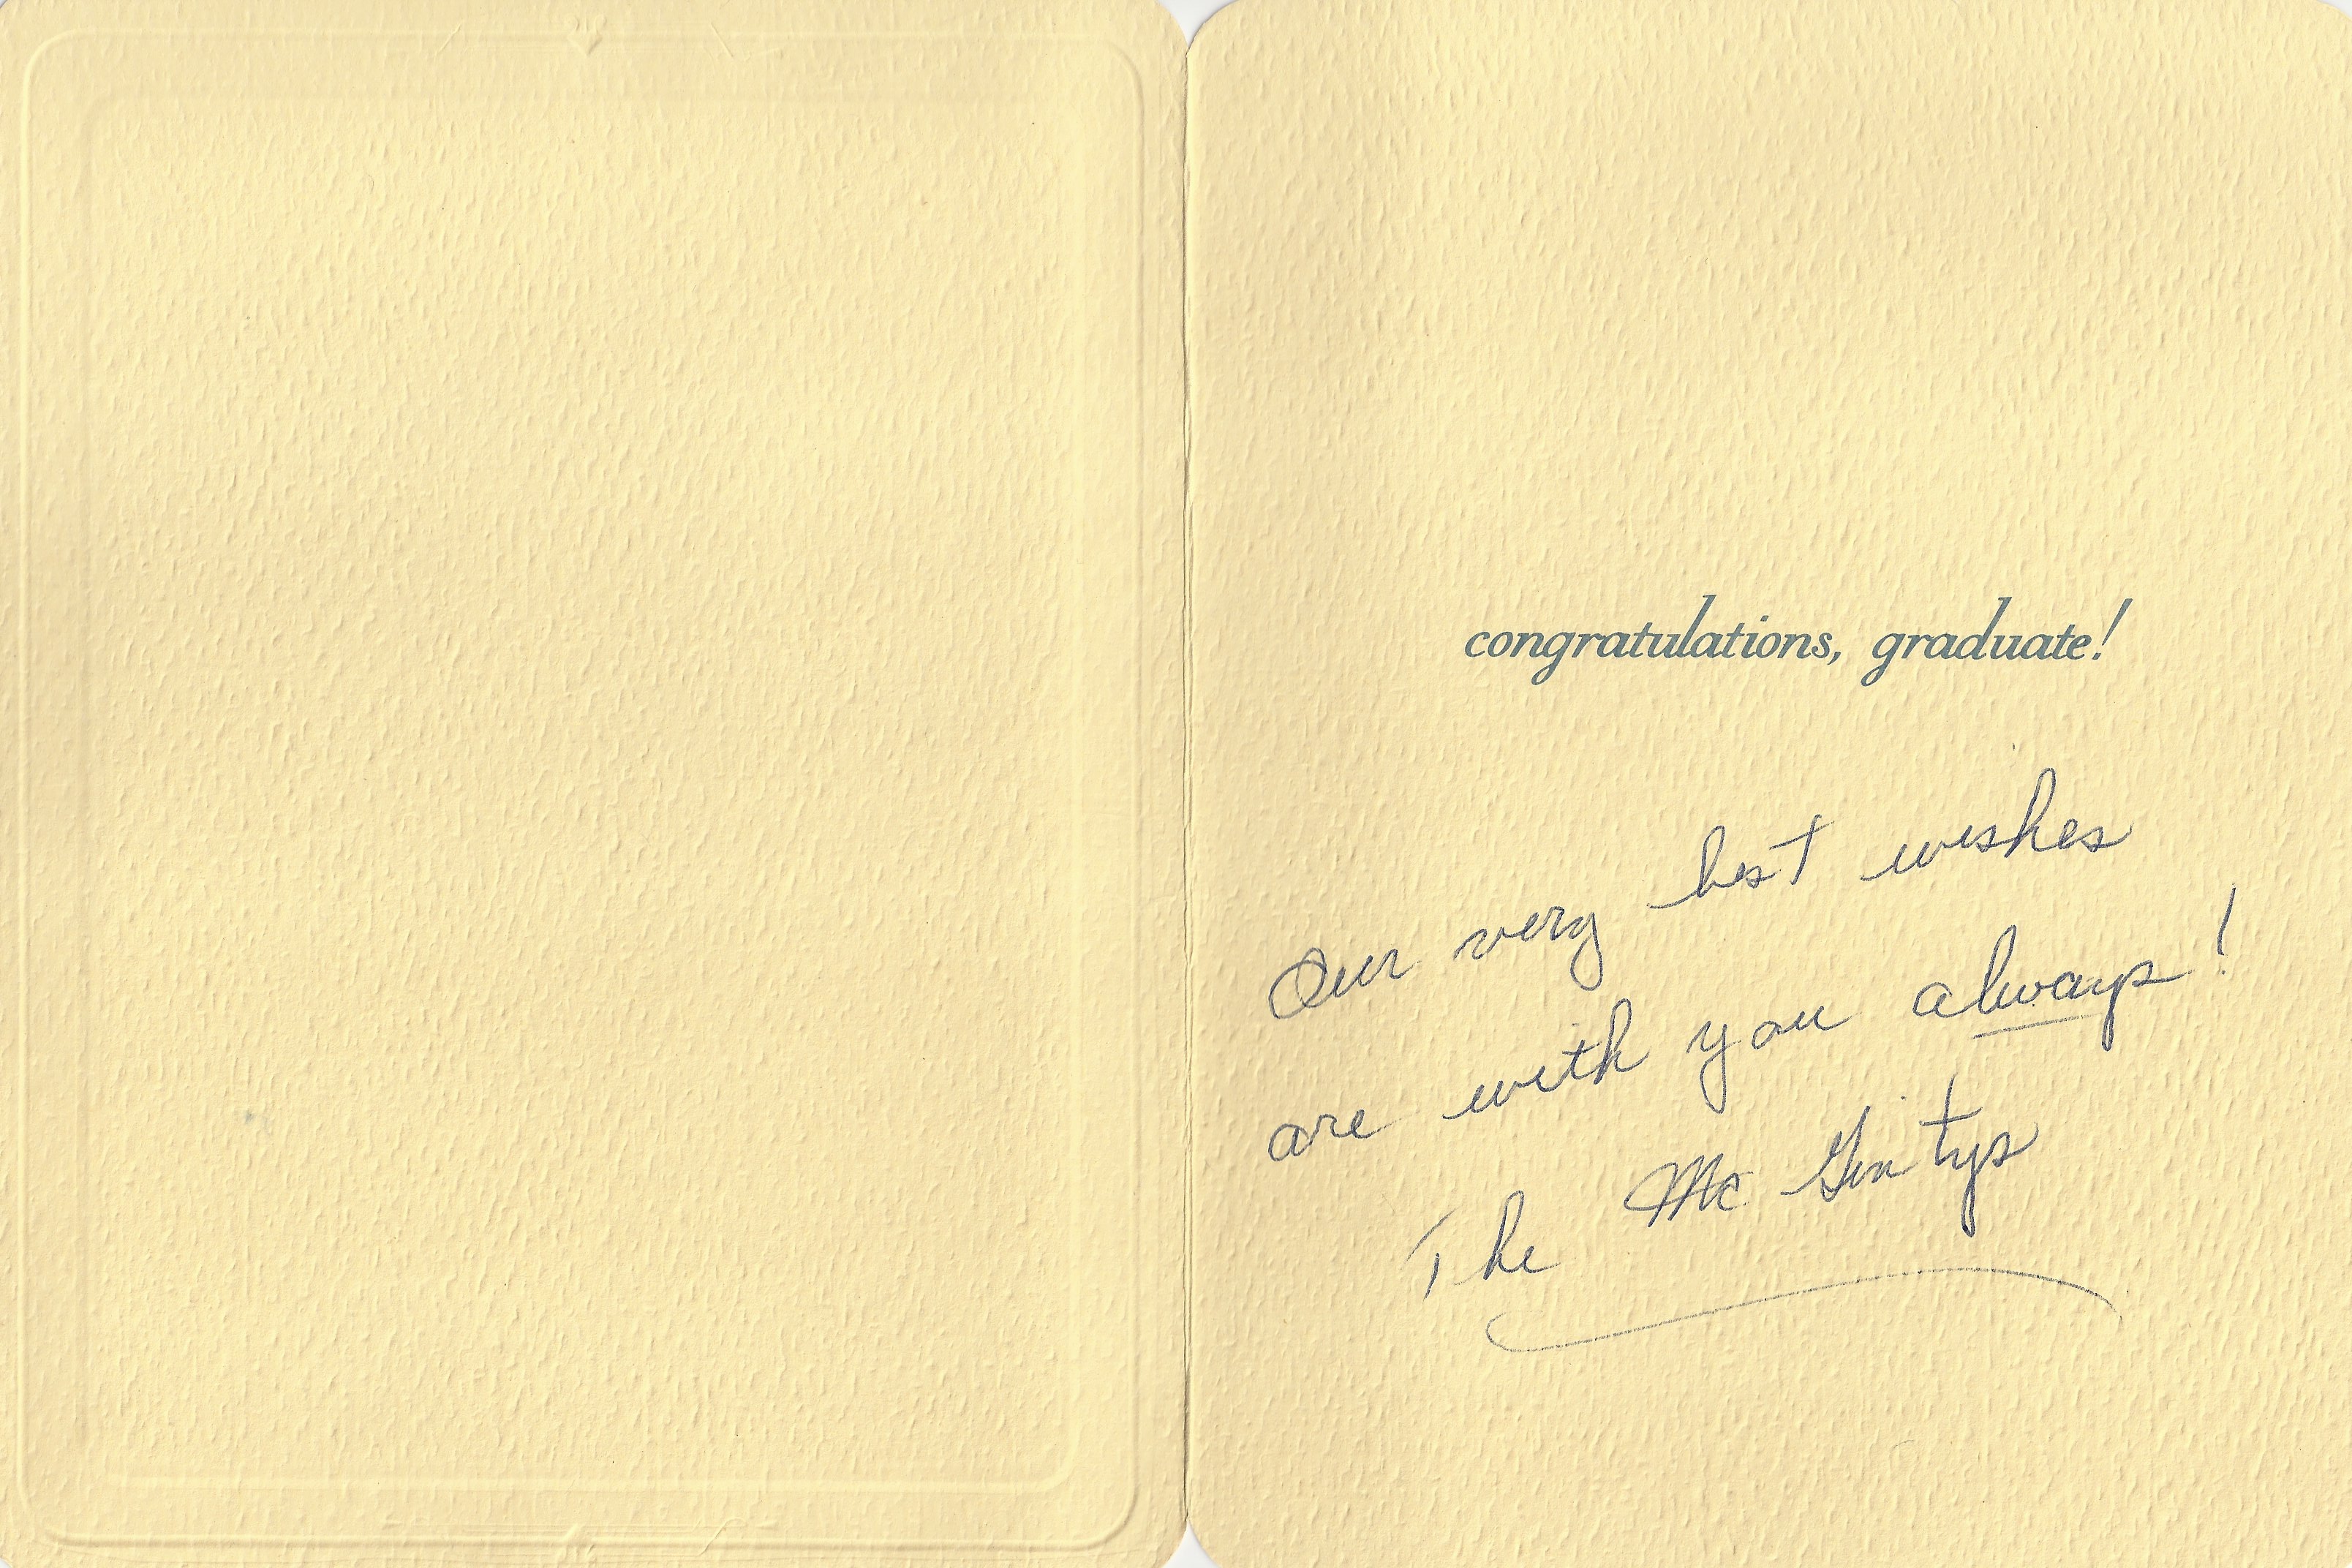 congratulations, graduate!
Our very best wishes
are with you always!
The Mc Gintys